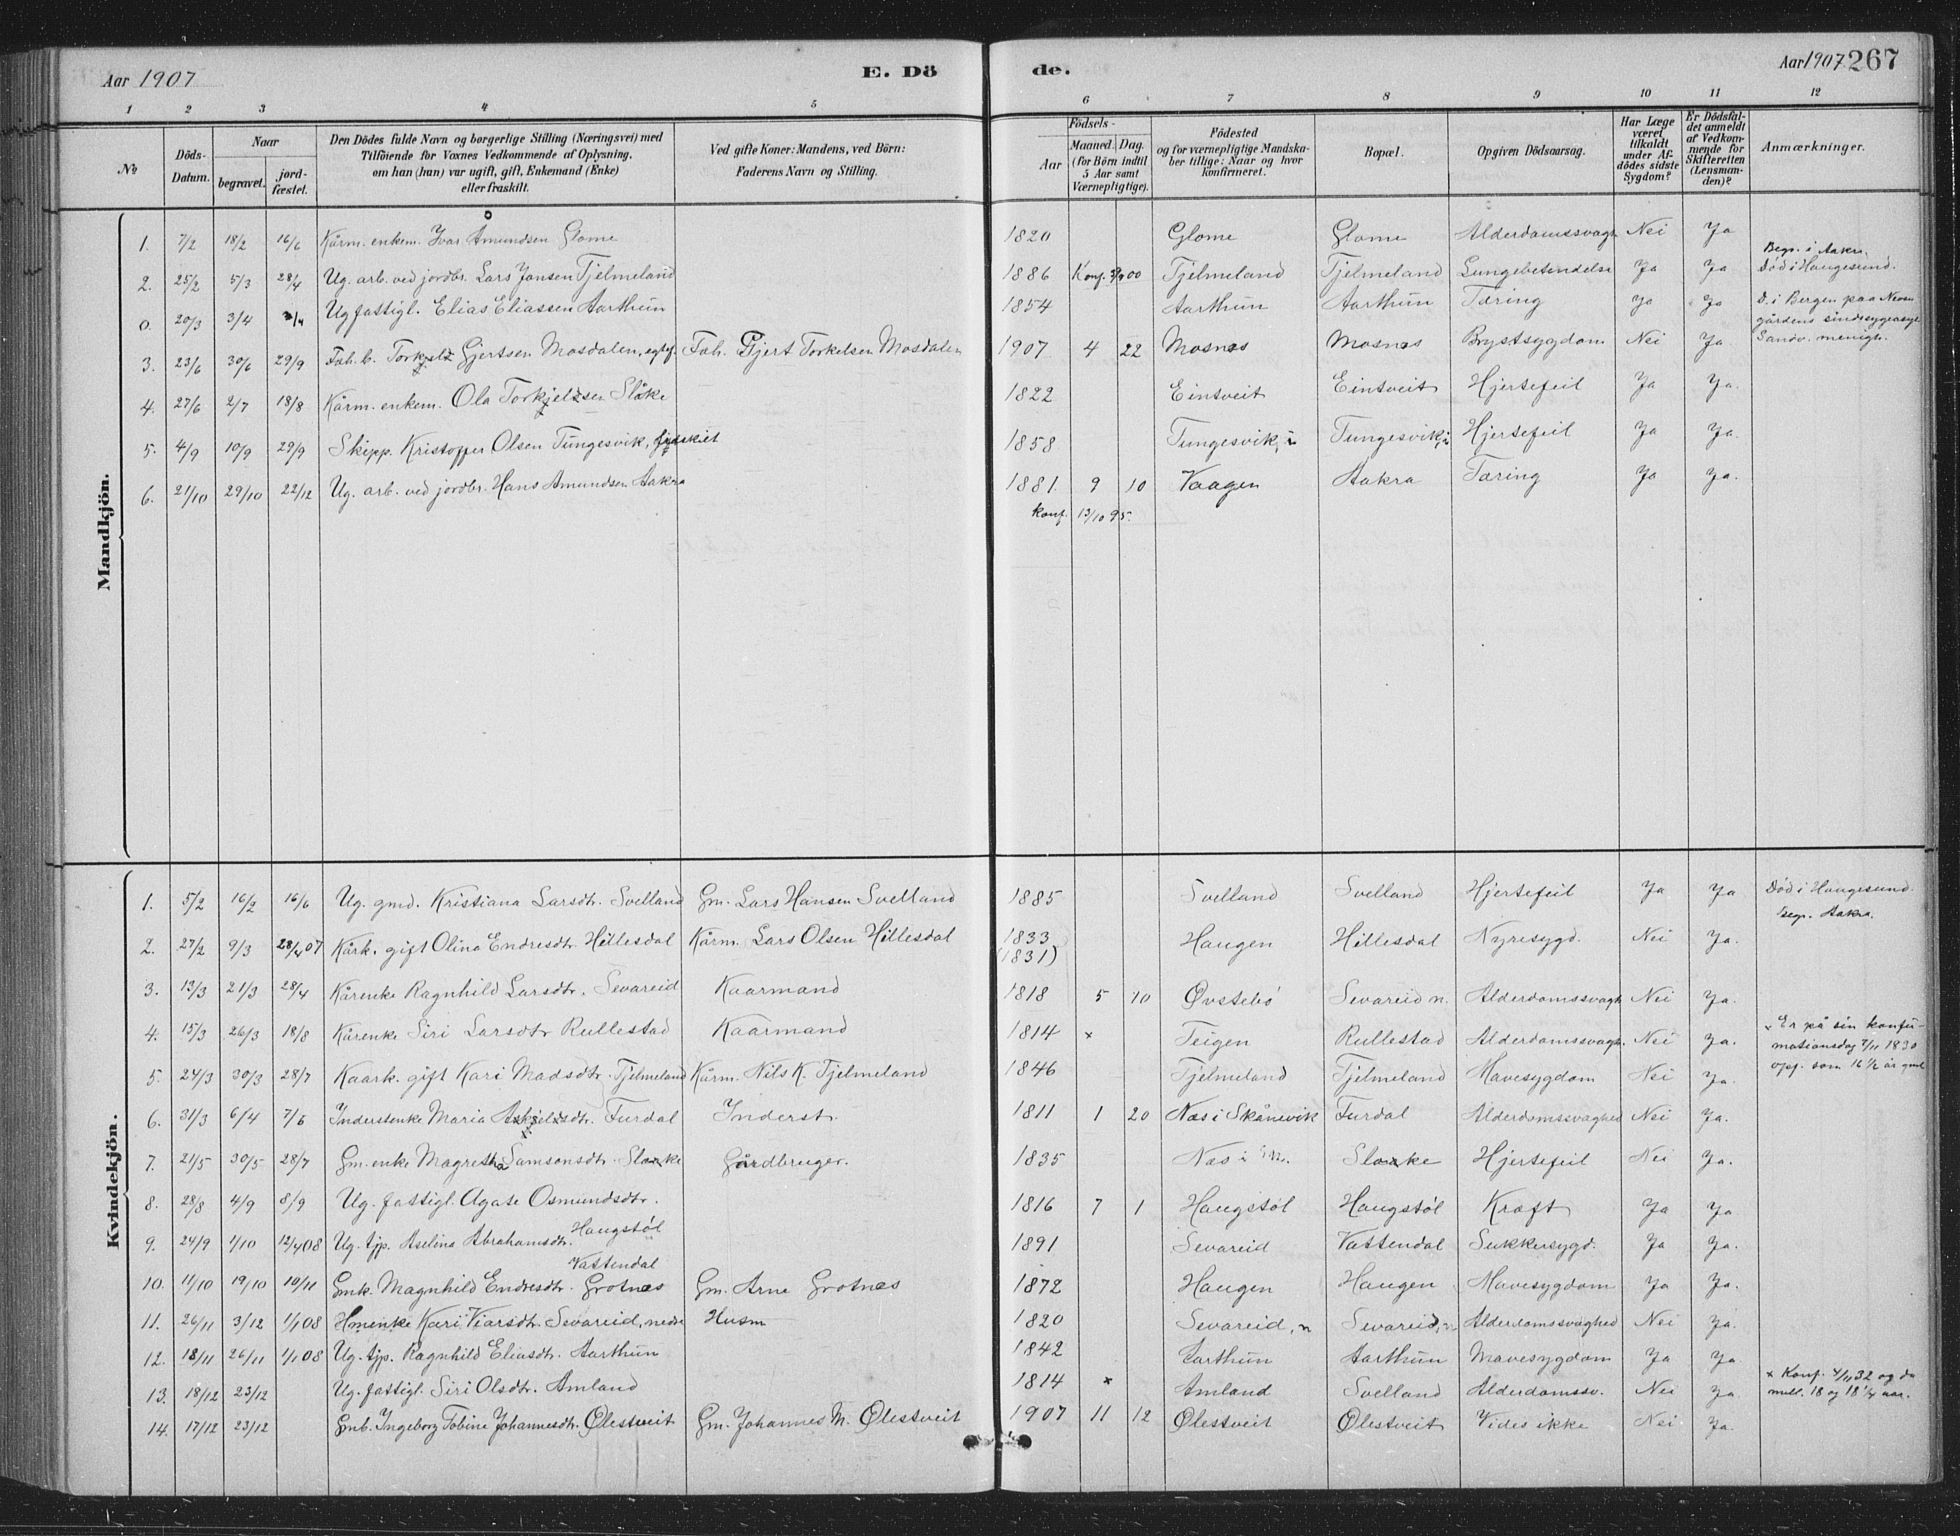 Aar 1907 E. Dö de. Aar 1907 267
1 2 3 4 5 6 7 8 9 10 11 12
No Döds-Datum. Naar begravet. jord-fæstet. Den Dödes fulde Navn og borgerlige Stilling (Næringsvei) med Tilföiende for Voxnes Vedkommende af Oplysning, om han (hun) var ugift, gift, Enkemand (Enke) eller fraskilt. Ved gifte Koner: Mandens, ved Börn: Faderens Navn og Stilling. Födsels- Aar Maaned. Dag. (for Börn indtil 5 Aar samt Værnepligtige). Födested og for værnepligtige Mandska-ber tillige: Naar og hvor konfirmeret. Bopæl. Opgiven Dödsaarsag. Har Læge været tilkaldt under Af-dödes sidste Sygdom? Er Dödsfal-det anmeldt af Vedkom-mende for Skifteretten (Lensman-den)? Anmærkninger.
Mandkjön.
1. 7/2 18/2 16/6 Kårm. enkem. Ivar Amundsen Glome 1820 Glome Glome Alderdomssvagh Nei Ja
2. 25/2 5/3 28/4 Ug. arb. ved jordbr. Lars Jansen Tjelmeland 1886 Konf. 00 Tjelmeland Tjelmeland Lungebetændelse Ja Ja Begr. i Aakra. Död i Haugesund.
0. 20/3 3/4 Ug fattigl. Elias Eliassen Aarthun 1854 Aarthun Aarthun Tæring Ja Ja D. i Bergen paa Neven gårdens sindssygeasyl Sandv. menigh.
3. 23/6 30/6 29/9 Fab. b. Torkjel Gjertsen Mosdalen, egtef. Fab. Gjert Torkelsen Mosdalen 1907 4 22 Mosnæs Mosnæs Brystsygdom Nei Ja
4. 27/6 2/7 18/8 Kårm. enkem. Ola Torkjelsen Slåke 1822 Eintveit Eintveit Hjertefeil Ja Ja.
5. 4/9 10/9 29/9 Skipp. Kristoffer Olsen Tungesvik, 1858 Tungesvik, i Tungesvik, i Hjertefeil Ja Ja.
6. 21/10 29/10 22/12 Ug. arb. ved jordbr. Hans Amundsen Aakra 1881 9 10 Vaagen Aakra Tæring Ja Ja.
konf. 13/10 95.
Kvindekjön.
1. 5/2 16/2 16/6 Ug. gmd. Kristiana Larsdtr. Svelland Gm. Lars Hansen Svelland 1885 Svelland Svelland Hjertefeil Ja Ja Död i Haugesund. Begr. Aakra.
2. 27/2 9/3 28/4 07 Kårk. gift Olina Endresdtr. Hillesdal Kårm. Lars Olsen Hillesdal 1833 (1831) Haugen Hillesdal Nyresygd. Nei Ja.
3. 13/3 21/3 28/4 Kårenke Ragnhild Larsdtr. Sevareid Kaarmand 1818 5 10 Øvstebö Sevareid n. Alderdomssvagh Nei Ja.
4. 15/3 26/3 18/8 Kårenke Siri Larsdtr Rullestad Kaarmand 1814 x Teigen Rullestad Alderdomssvagh. Nei Ja. x Er på sin konfir-mationsdag 7/11 1830 opg. som 16 1/2 år gml
5. 24/3 30/3 28/7 Kaark. gift Kari Madsdtr. Tjelmeland Kårm. Nils K. Tjelmeland 1846 Tjelmeland Tjelmeland Mavesygdom Nei Ja.
6. 31/3 6/4 7/5 Inderstenke Maria Askjelsdtr. Furdal Inderst. 1811 1 20 Næs i Skånevik Furdal Alderdomssvaghed Nei Ja.
7. 21/5 30/5 28/7 Gm. enke Magretha Samsonsdtr. Slaake Gårdbruger. 1835 Næs i Slaake Hjertefeil Nei Ja.
8. 28/8 4/9 8/9 Ug. fattigl. Agate Osmundsdtr. Haugstøl 1816 7 1 Haugstøl Haugstøl Kræft Ja Ja
9. 24/9 1/10 12/4 08 Ug. tjp. Aselina Abrahamsdtr. Vattendal 1891 Sevareid Vattendal Sukkersygd. Ja Ja.
10. 11/10 19/10 10/11 Gmk. Magnhild Endresdtr. Grotnæs Gm. Arne Grotnæs 1872 Haugen Haugen Mavesygdom Ja Ja.
11. 26/11 3/12 1/1 08 Hmenke Kari Viarsdtr. Sevareid, nedre Husm 1820 Sevareid, n Sevareid, n Alderdomssvaghed Nei Ja.
12. 18/11 26/11 1/1 08 Ug. tjp. Ragnhild Eliasdtr. Aarthun 1842 Aarthun Aarthun Mavesygdom Ja Ja
13. 18/12 23/12 Ug. fattigl. Siri Olsdtr. Amland 1814 x Amland Svelland Alderdomssv. Nei Ja x Konf. 4/11 32 og da mell. 18 og 18 1/2 aar.
14. 17/12 23/12 Gmb. Ingeborg Tobine Johannesdtr. Ølestveit Gm. Johannes M. Ølestveit 1907 11 12 Ølestveit Ølestveit Vides ikke Nei Ja.